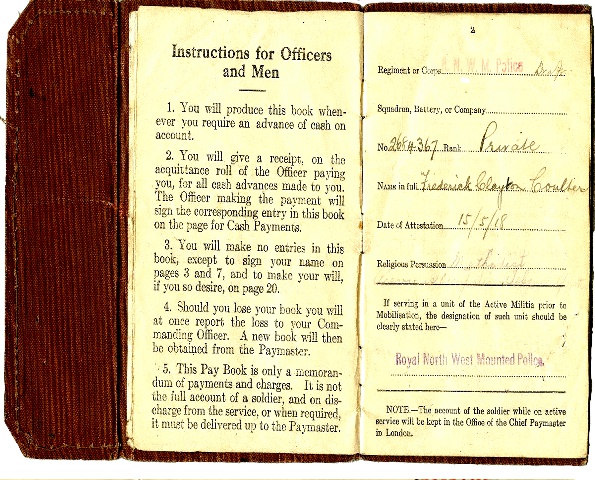 Instructions for Officers
and Men
1. You will produce this book when-
ever you require an advance of cash on
account.
2. You will give a receipt, on the
acquittance roll of the Officer paying
you, for all cash advances made to you.
The Officer making the payment will
sign the corresponding entry in this book
on the page for Cash Payments.
3. You will make no entries in this
book, except to sign your name on
pages 3 and 7, and to make your will,
if you so desire, on page 20.
4. Should you lose your book you will
at once report the loss to your Com-
manding Officer. A new book will then
be obtained from the Paymaster.
5. This Pay Book is only a memoran-
dum of payments and charges. It is not
the full account of a soldier, and on dis-
charge from the service, or when required,
it must be delivered up to the Paymaster.
2
Regiment or Corps R. N. W. M. Police
Squadron, Battery, or Company
No. 2684367 Rank Private
Name in full Frederick Clayton Coulter
Date of Attestation 15/5/18
Religious Persuasion Methodist
If serving in a unit of the Active Militia prior to
Mobilisation, the designation of such unit should be
clearly stated here—
Royal North West Mounted Police.
NOTE.—The account of the soldier while on active
service will be kept in the Office of the Chief Paymaster
in London.